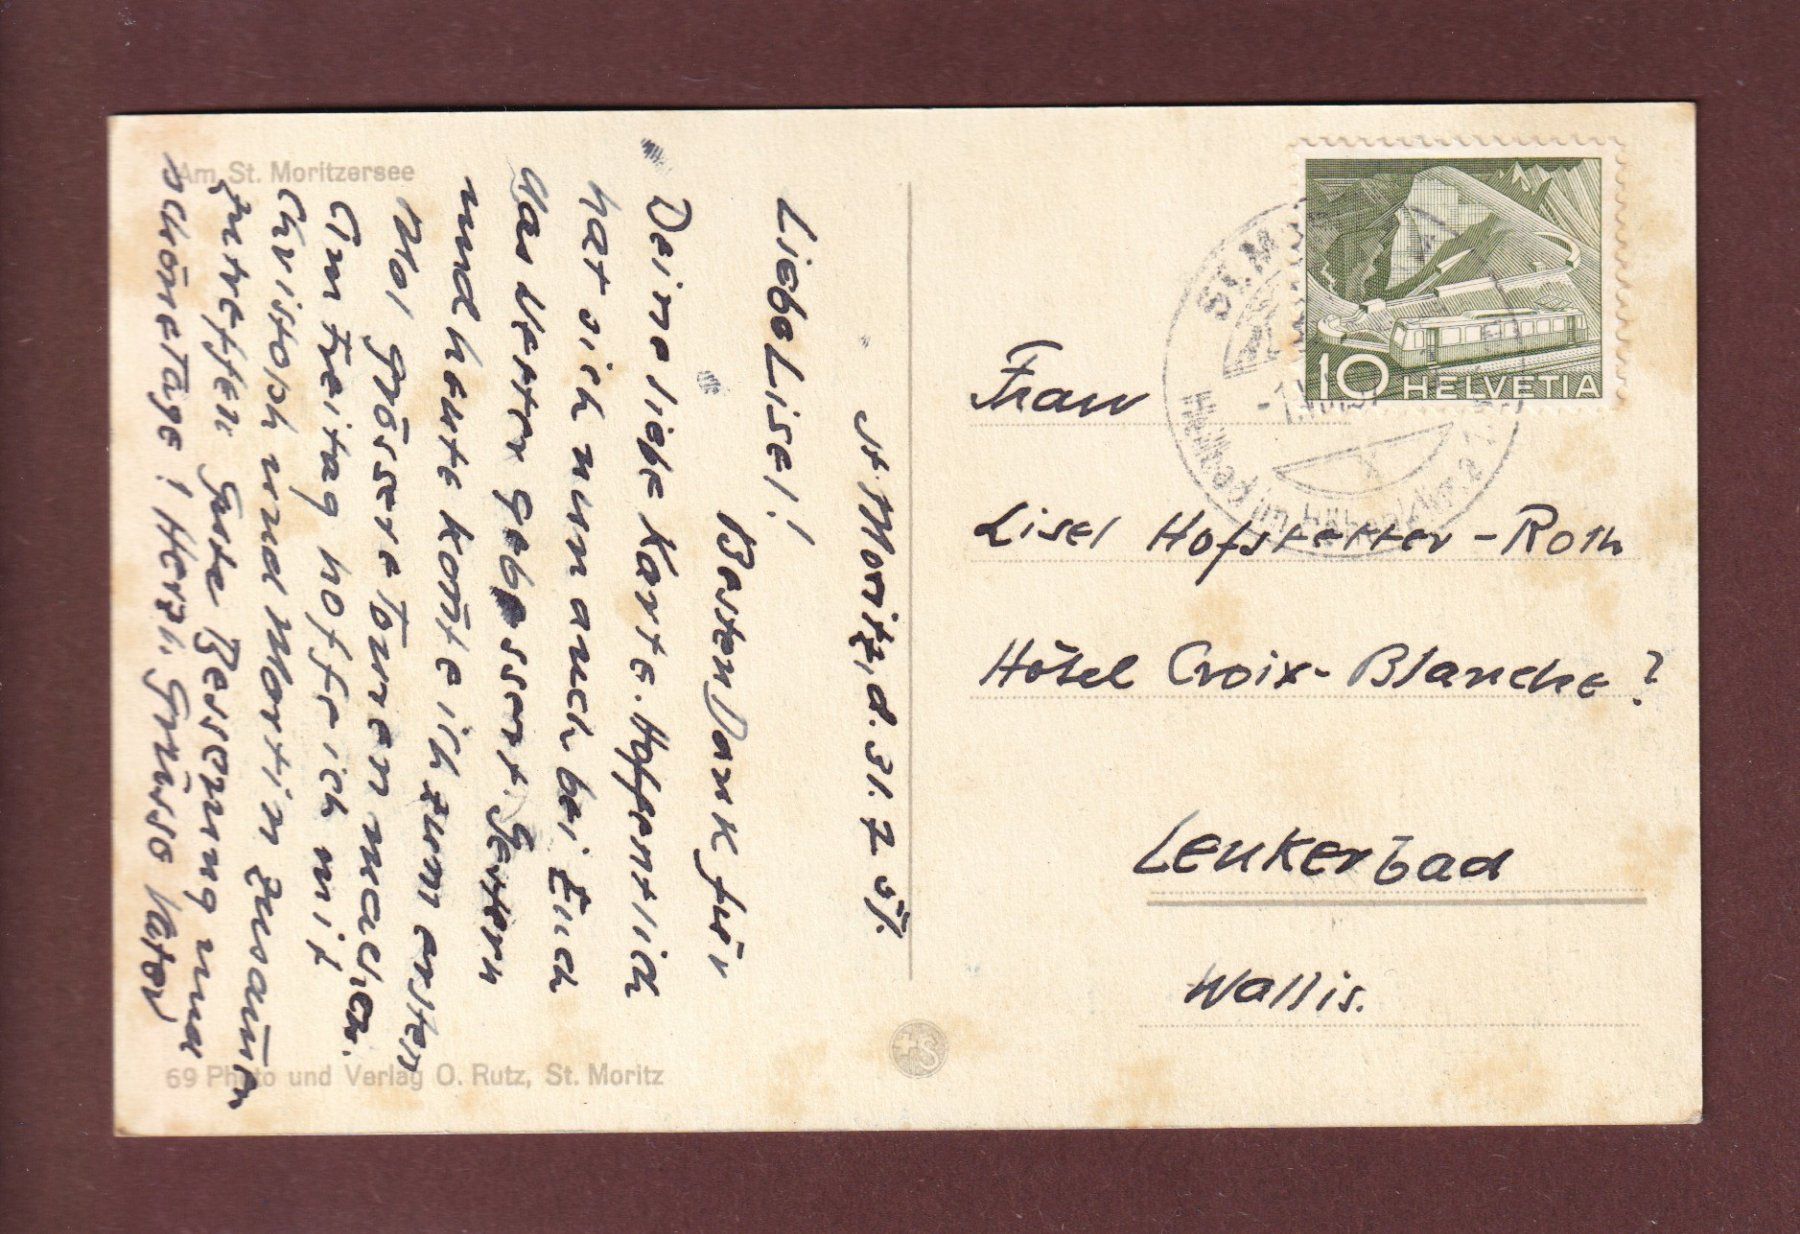 Am St. Moritzersee
St. Moritz, d. 31. 7 51.
Liebe Lisel!
Besten Dank für
Deine liebe Karte. Hoffentlich
hat sich nun auch bei Euch
das Wetter gebessert. Gestern
und heute konnte ich zum ersten
Mal grössere Touren machen.
Am Freitag hoffe ich mit
Christoph und Martin zusam̄en
zutreffen. Gute Besserung und
schöne Tage! Herzl. Grüsse Vater
69 Photo und Verlag O. Rutz, St. Moritz
10 HELVETIA
ST. M
Frau
Lisel Hofstetter-Roth
Hôtel Croix-Blanche ?
Leukerbad
Wallis.